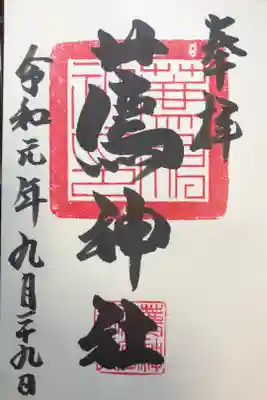 奉拝
薦神社
令和元年九月二十九日